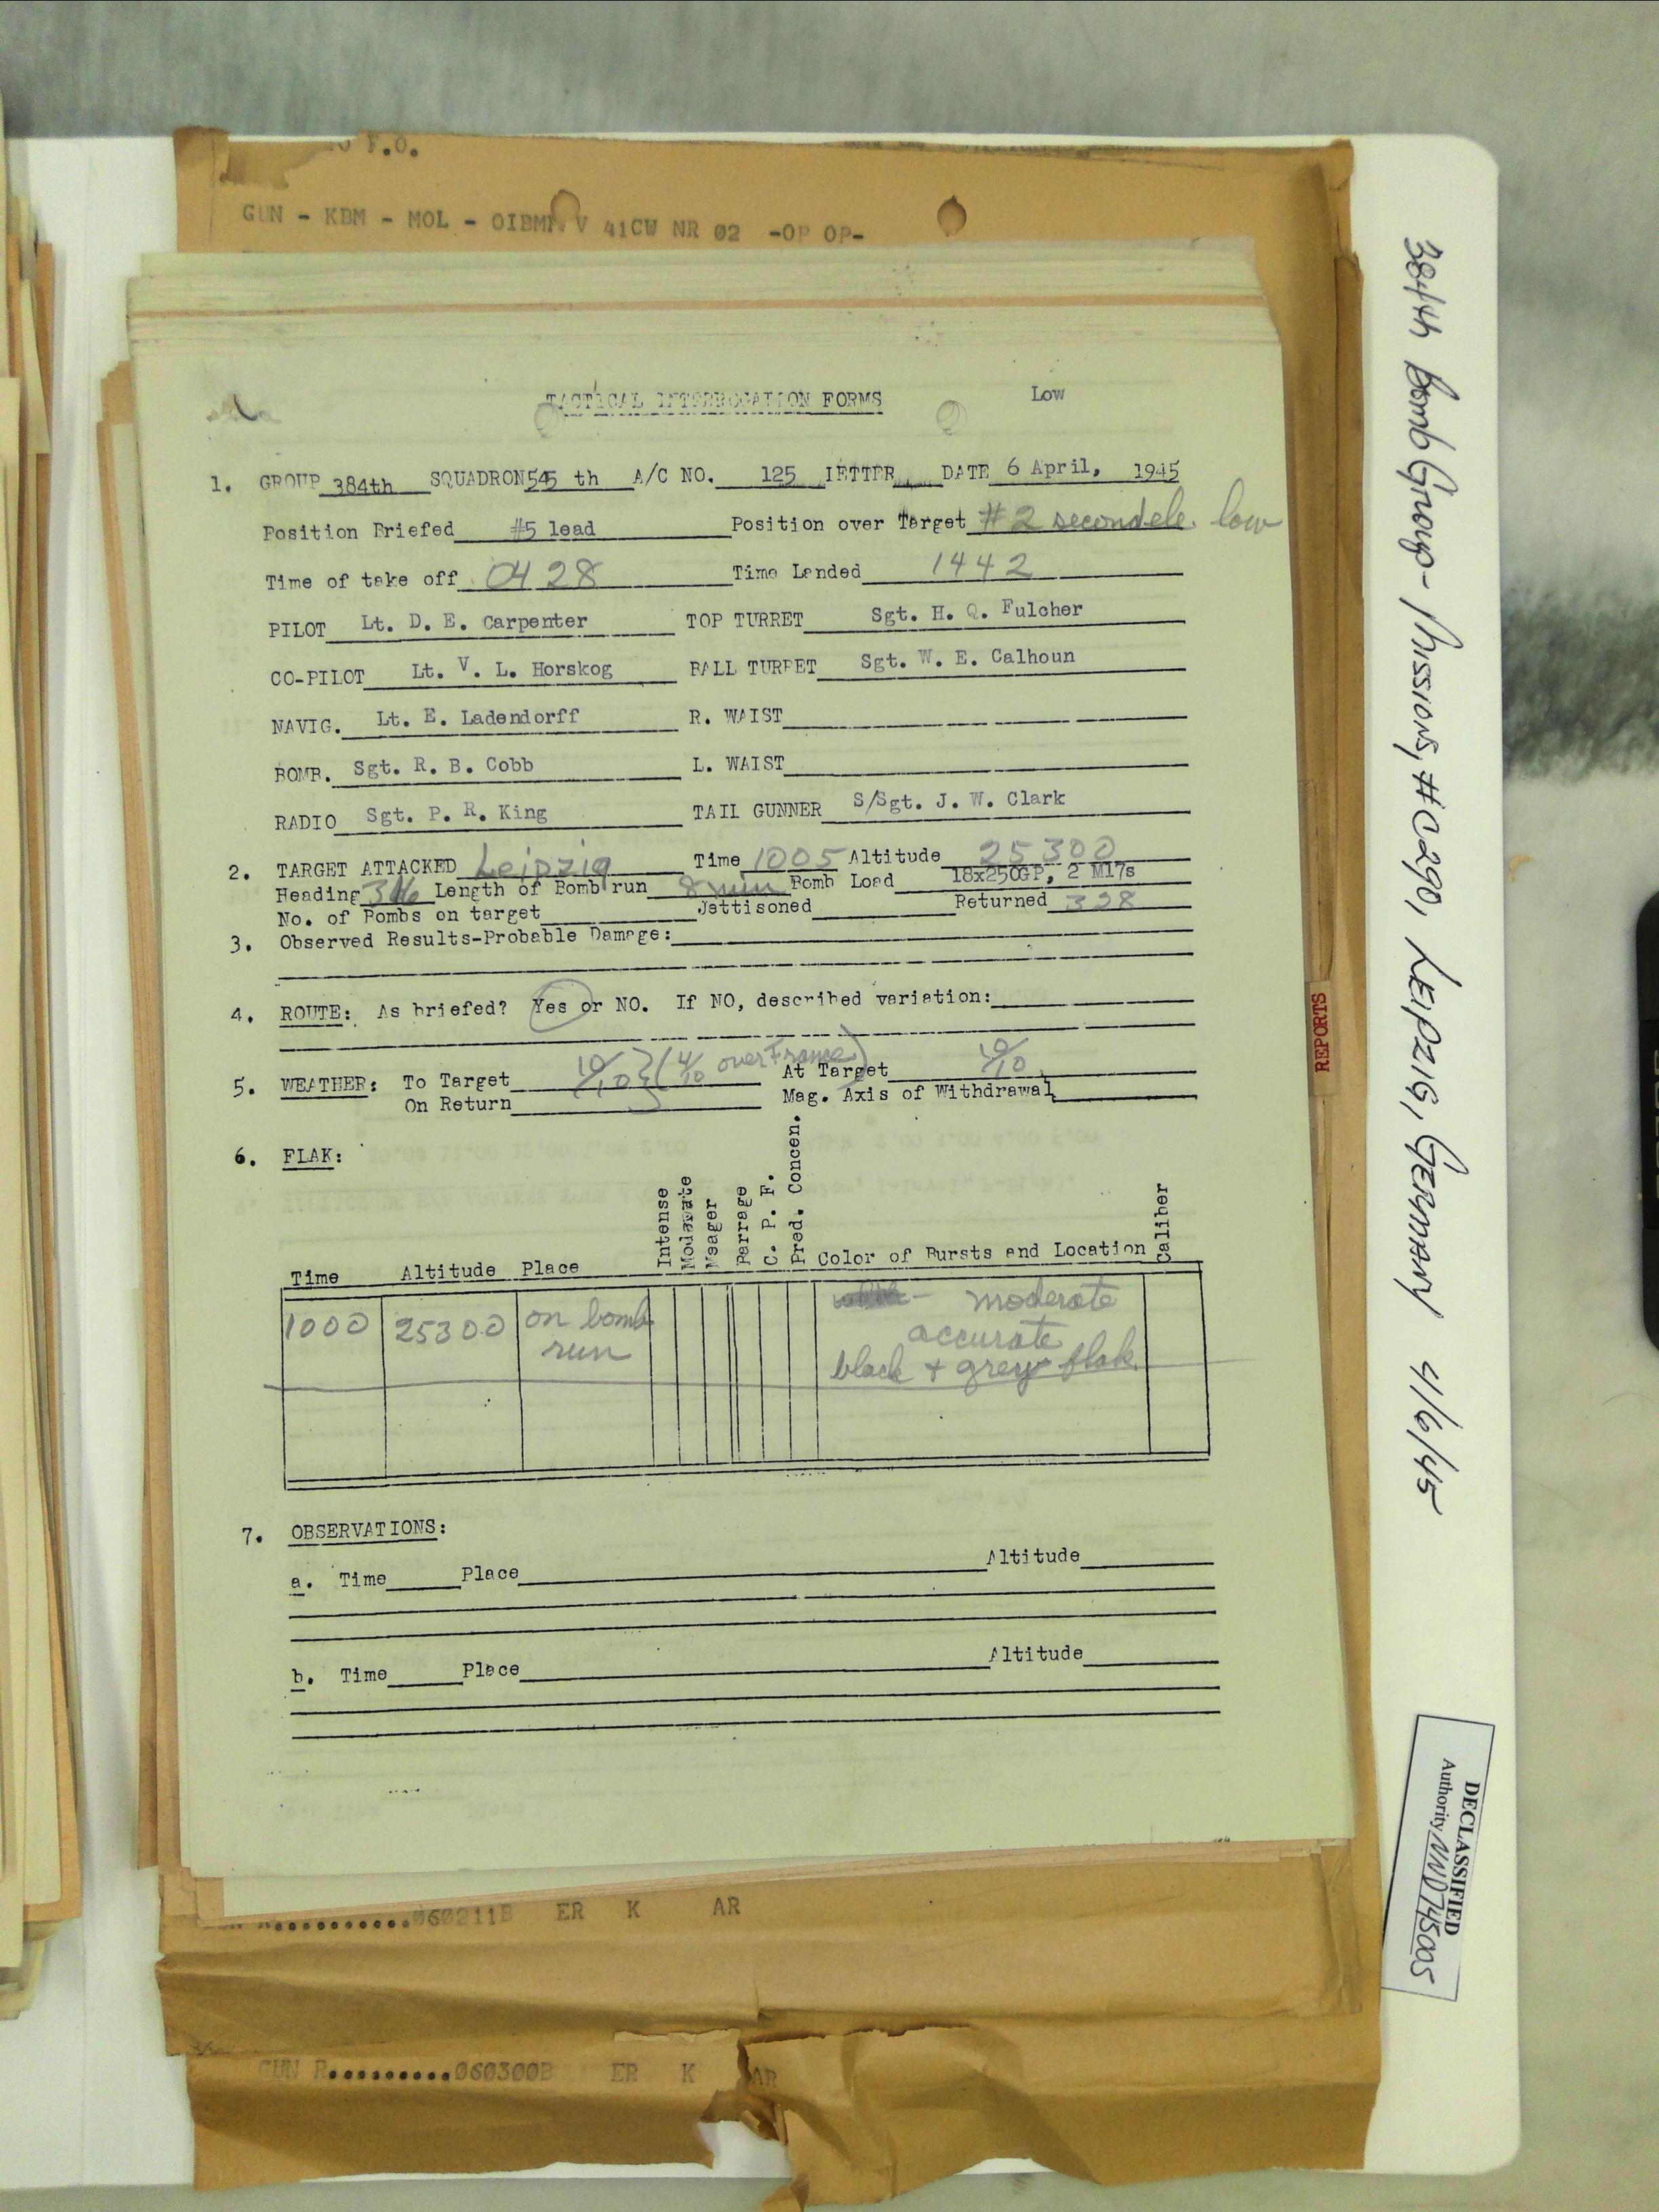 F.O.
GUN - KBM - MOL - OIBMR V 41CW NR 02 -OP OP-
TACTICAL INTERROGATION FORMS
Low
1. GROUP 384th SQUADRON 545 th A/C NO. 125 LETTER DATE 6 April, 1945
Position Briefed #5 lead Position over Target #2 second ele. low
Time of take off 0428 Time Landed 1442
PILOT Lt. D. E. Carpenter TOP TURRET Sgt. H. Q. Fulcher
CO-PILOT Lt. V. L. Horskog BALL TURRET Sgt. W. E. Calhoun
NAVIG. Lt. E. Ladendorff R. WAIST
BOMB. Sgt. R. B. Cobb L. WAIST
RADIO Sgt. P. R. King TAIL GUNNER S/Sgt. J. W. Clark
2. TARGET ATTACKED Leipzig Time 1005 Altitude 25300
Heading Length of Bomb run 8 min Bomb Load 18x250GP, 2 M17s
No. of Bombs on target Jettisoned Returned 328
3. Observed Results-Probable Damage:
4. ROUTE: As briefed? Yes or NO. If NO, described variation:
5. WEATHER: To Target 10/10 (4/10 over France) At Target 10/10
On Return Mag. Axis of Withdrawal
6. FLAK:
Time Altitude Place Intense Moderate Meager Barrage C. P. F. Pred. Concen. Color of Bursts and Location Caliber
1000 25300 on bomb run - moderate
accurate
black + grey flak
7. OBSERVATIONS:
a. Time Place Altitude
b. Time Place Altitude
060211B ER K AR
GUN R.........060300B ER K AR
REPORTS
384th Bomb Group - Mission #290, LEIPZIG, GERMANY 4/6/45
DECLASSIFIED
Authority NND745005